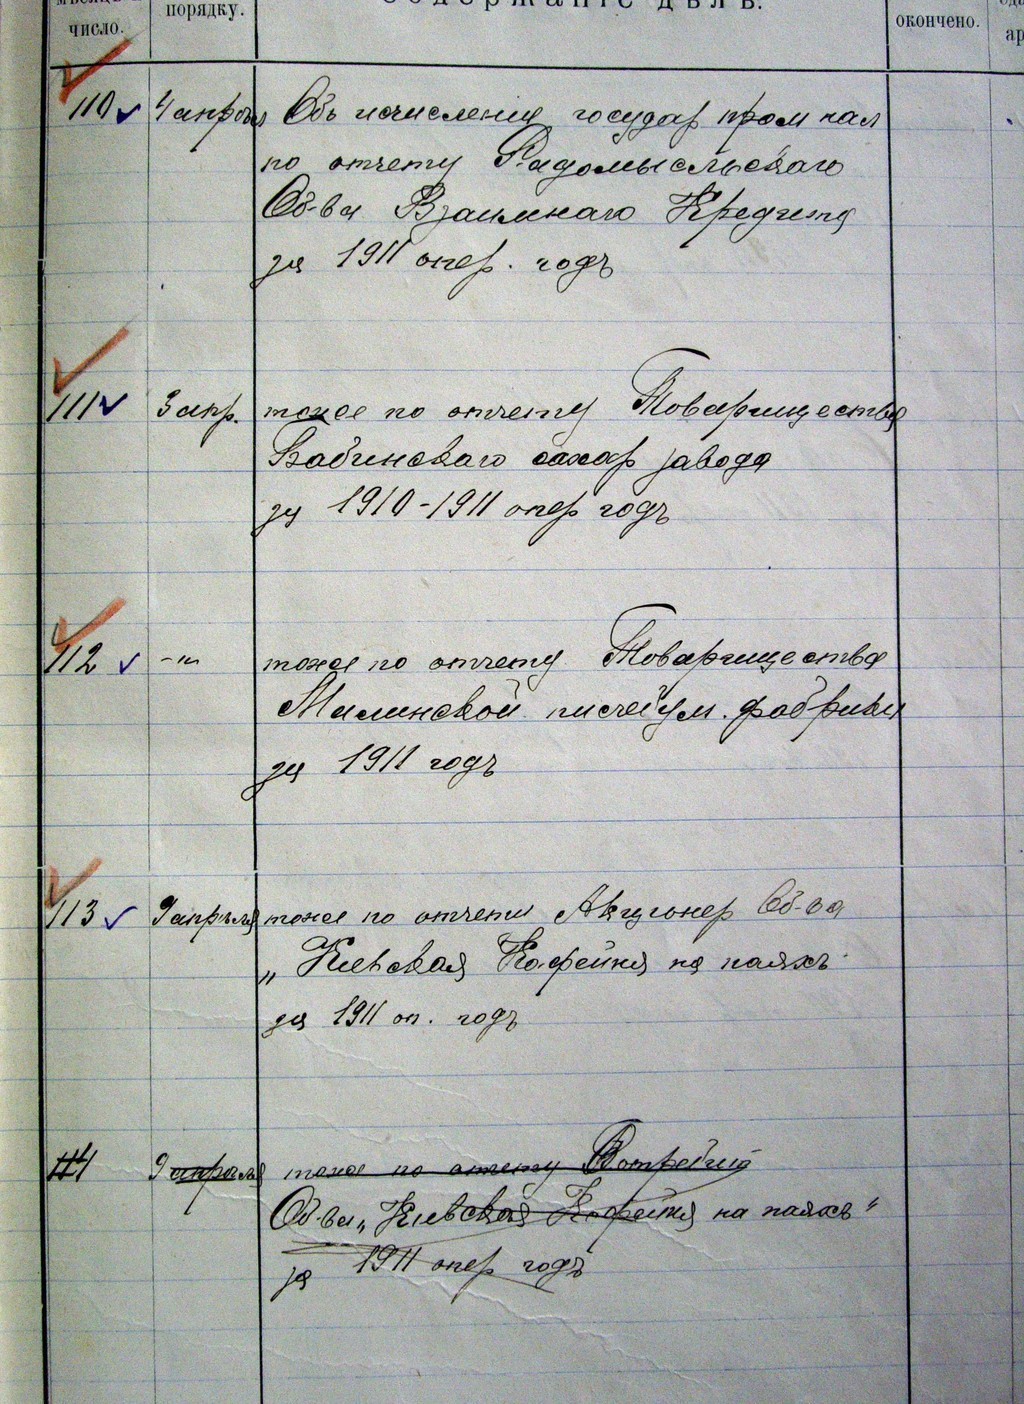 число.
порядку.
содержаніе дѣлъ.
окончено.
110 4 апрѣля Объ исчисленіи государ пром нал
по отчету Радомысльскаго
Об-ва Взаимнаго Кредита
за 1911 опер. годъ
111 3 апр. тоже по отчету Товарищества
Бабинскаго сахар завода
за 1910-1911 опер годъ
112 -"- тоже по отчету Товарищества
Малинской писчебум. фабрики
за 1911 годъ
113 9 апрѣля тоже по отчету Акціонер Об-ва
„Кіевская Кофейня на паяхъ
за 1911 оп. годъ
9 апрѣля тоже по отчету
Об-ва „Кіевская Кофейня на паяхъ"
за 1911 опер годъ